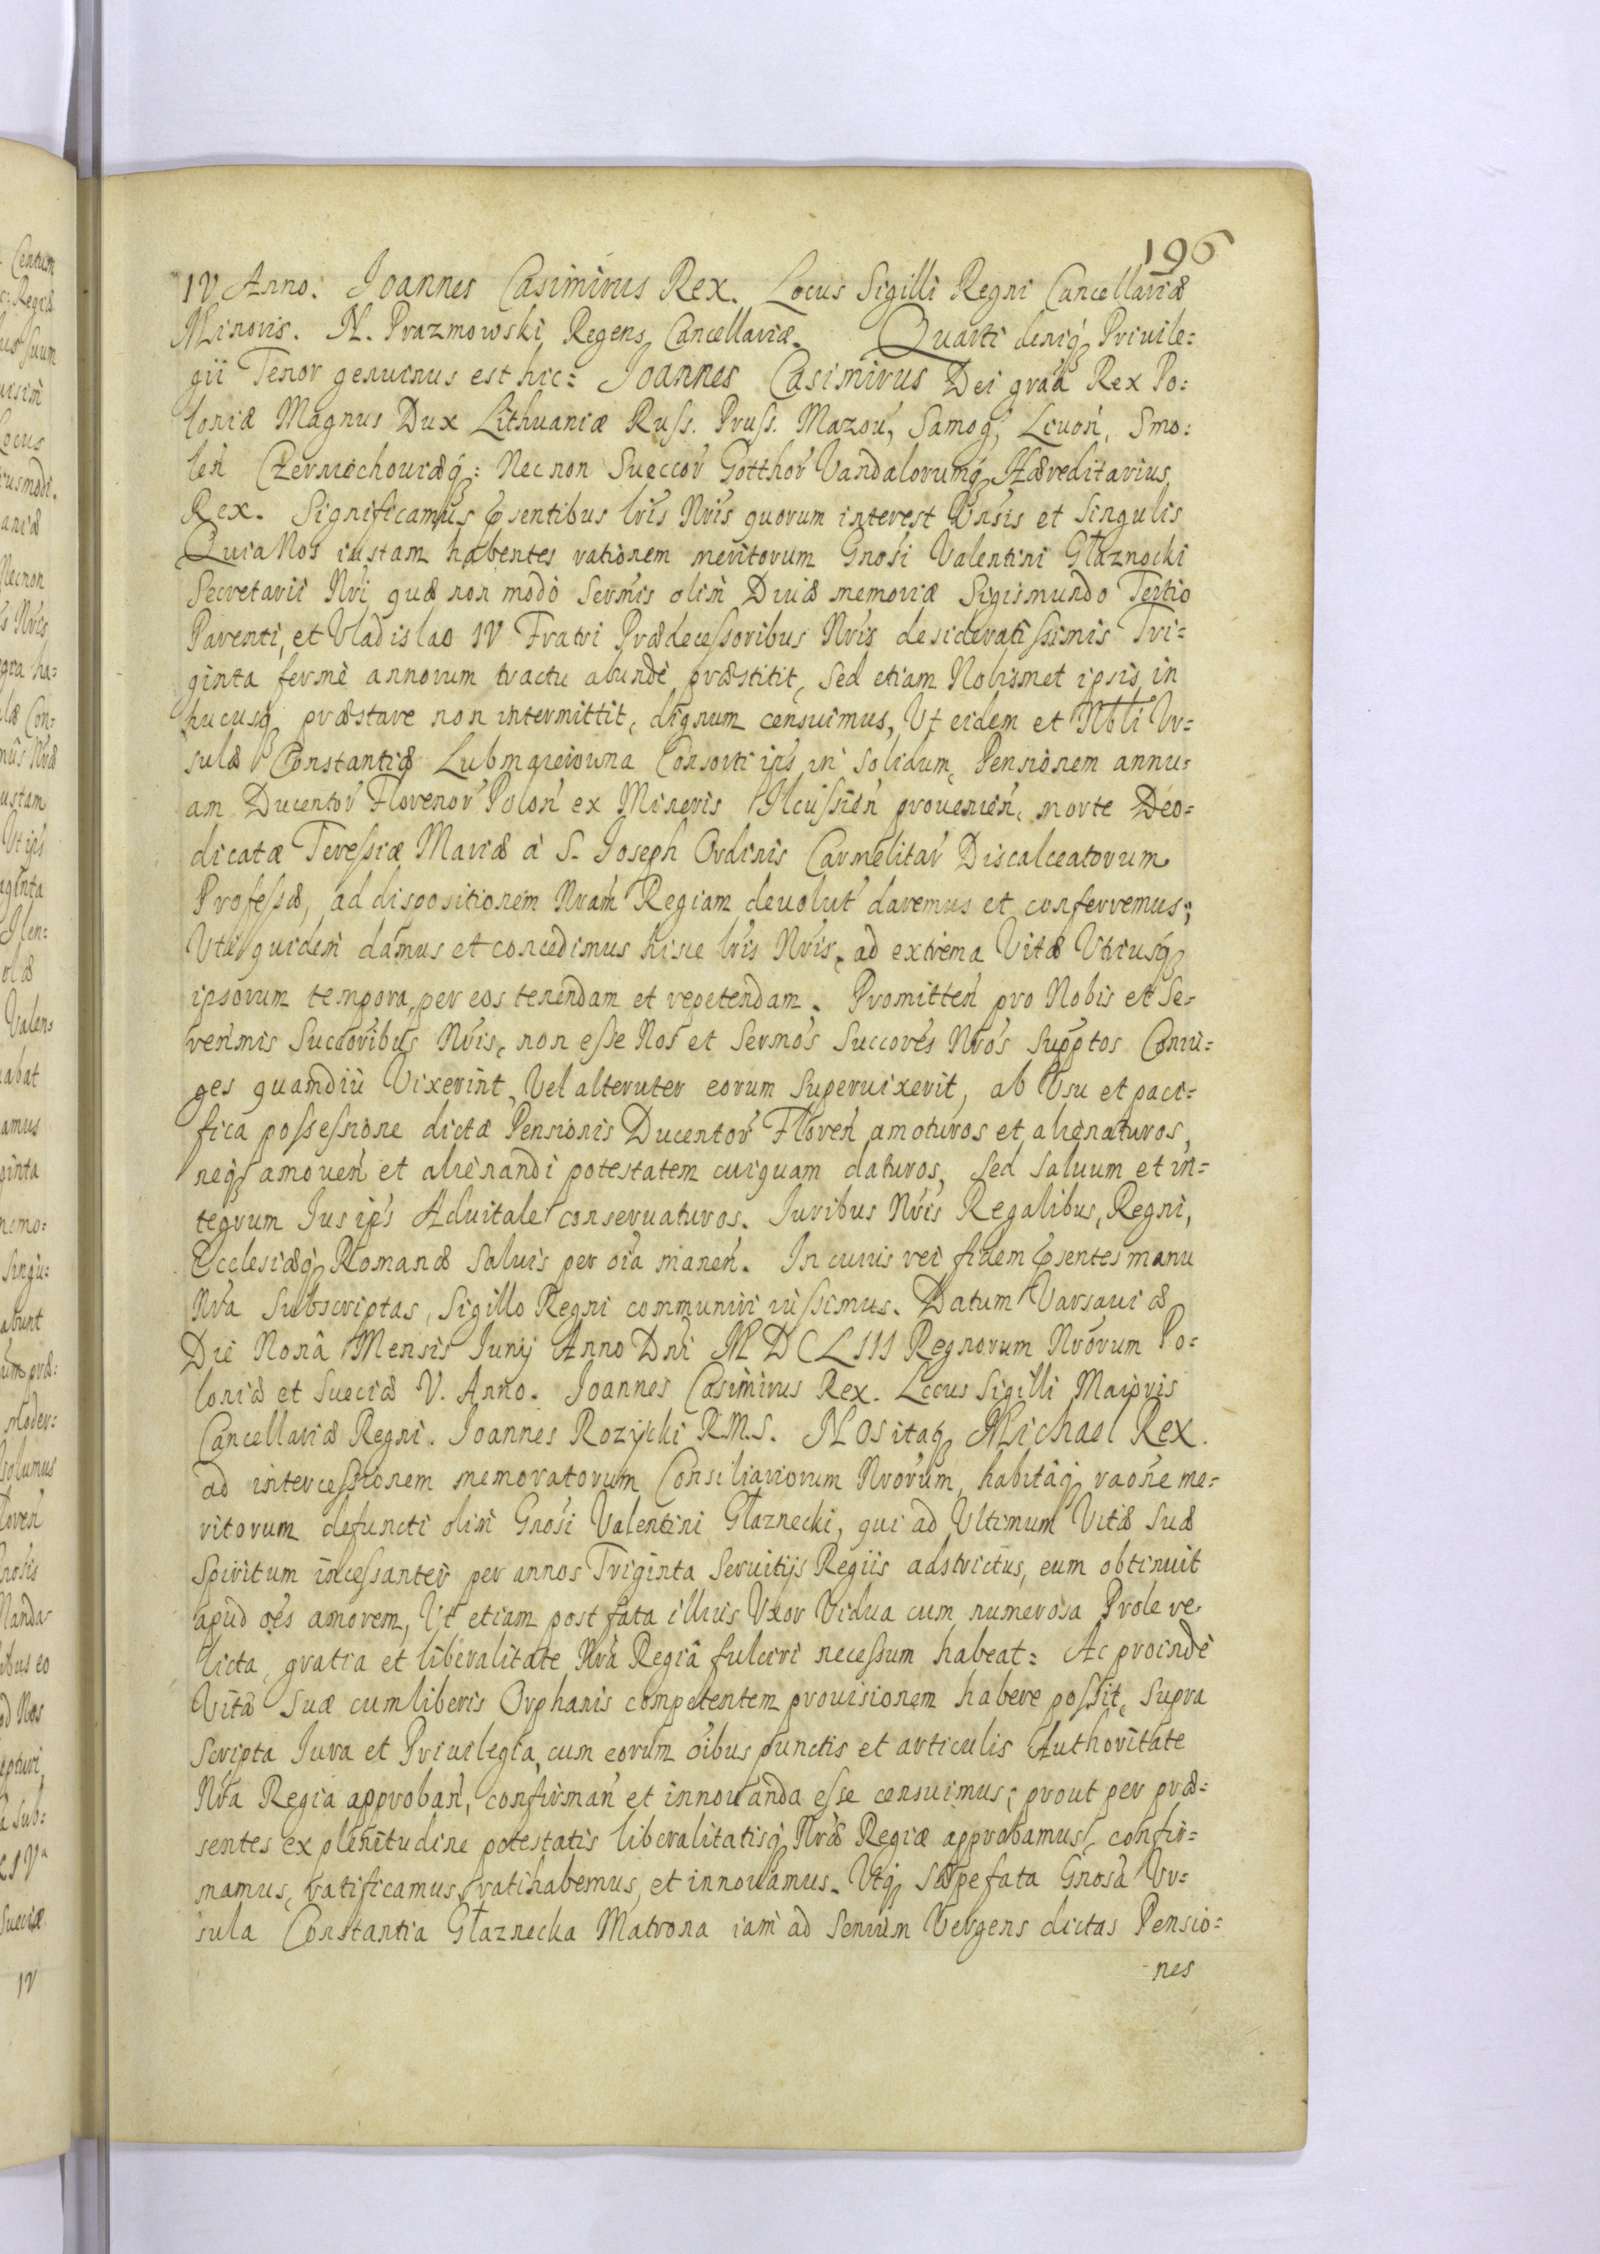 196
IV Anno. Joannes Casimirus Rex. Locus Sigilli Regni Cancellariæ
Minoris. N. Prazmowski Regens Cancellariæ. Quarti deniq́ Priuile=
gii Tenor genuinus est hic: Joannes Casimirus Dei gratia Rex Po=
loniæ Magnus Dux Lithuaniæ Russ. Pruss. Mazov, Samog, Livon, Smo:
len Czerniechouiæq́: Nec non Sueccor Gotthor Vandalorumq́ Hæreditarius
Rex. Significamus Psentibus lris Nris quorum interest Vnsis et Singulis
Quia Nos iustam habentes rationem meritorum Gnosi Valentini Głaznocki
Secretarii Nri quæ non modo Sermis olim Diuæ memoriæ Sigismundo Tertio
Parenti, et Vladislao IV Fratri Prædecessoribus Nris desideratissimis Tri=
ginta fermè annorum tractu abundè præstitit, sed etiam Nobismet ipsis in
hucusq́ præstare non intermittit, dignum censuimus, Vt eidem et Nbli Vr=
sulæ Constantiæ Consorti ips in solidum, Pensionem annu=
am Ducentor Florenor Polon ex Mineris Ilcussien prouenien, morte Deo=
dicatæ Teressiæ Mariæ à S. Joseph Ordinis Carmelitar Discalceatorum
Professæ, ad dispositionem Nram Regiam deuolut daremus et conferremus;
Vti quidem damus et concedimus hisce lris Nris, ad extrema Vitæ Vtriusq́
ipsorum tempora, per eos tenendam et repetendam. Promitten pro Nobis et Se=
renmis Succoribus Nris, non esse Nos et Sermos Succores Nros Supptos Coniu=
ges quamdiù Vixerint, Vel alteruter eorum superuixerit, ab Vsu et paci=
fica possessione dictæ Pensionis Ducentor Floren amoturos et alienaturos,
neq́ amouen et alienandi potestatem cuiquam daturos, sed saluum et in=
tegrum Jus ips Aduitale conseruaturos. Juribus Nris Regalibus, Regni,
Ecclesiæq́ Romanæ saluis per oia manen. In cuius rei fidem Psentes manu
Nra Subscriptas, Sigillo Regni communiri iussimus. Datum Varsauiæ
Die Nonâ Mensis Junij Anno Dni MDCLIII Regnorum Nrorum Po=
loniæ et Sueciæ V. Anno. Joannes Casimirus Rex. Locus Sigilli Maioris
Cancellariæ Regni. Joannes Rozycki R.M.S. NOS itaq́ Michael Rex.
ad intercessionem memoratorum Consiliariorum Nrorum, habitâq́ raone me=
ritorum defuncti olim Gnosi Valentini Głaznecki, qui ad Vltimum Vitæ suæ
Spiritum incessanter per annos Triginta Seruitijs Regiis adstrictus, eum obtinuit
apud oes amorem, Vt etiam post fata illius Vxor Vidua cum numerosa Prole re
licta, gratia et liberalitate Nrà Regiâ fulciri necessum habeat: Ac proindè
Vitæ suæ cum liberis Orphanis competentem prouisionem habere possit, supra
scripta Jura et Priuilegia, cum eorum oibus punctis et articulis Authoritate
Nra Regia approban, confirman et innouanda esse censuimus; prout per præ=
sentes ex plenitudine potestatis liberalitatisq́ Nræ Regiæ approbamus, confir=
mamus, ratificamus, ratihabemus, et innouamus. Vtq́ sæpe fata Gnosa Vr=
sula Constantia Głaznecka Matrona iam ad senium Vergens dictas Pensio=
nes